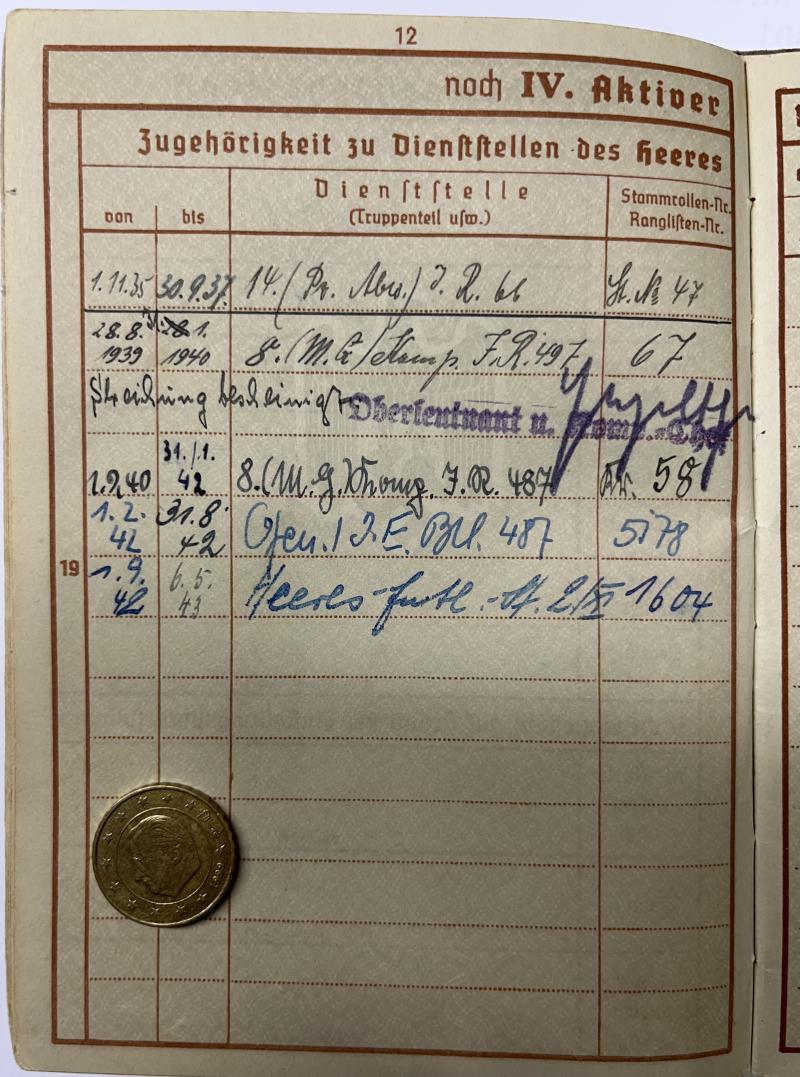 12
noch IV. Aktiver
Zugehörigkeit zu Dienststellen des Heeres
von bis Dienststelle (Truppenteil usw.) Stammrollen-Nr. Ranglisten-Nr.
1.11.35 30.9.37. 14. (Pz. Abw.) J. R. 66 St. No 47
28.8. 1939 31. 1. 1940 8. (M.G.) Komp. J.R. 497 67
Streichung bescheinigt
Oberleutnant u. Komp.-Chef
1.2.40 31./1. 42 8. (M.G.) Komp. J. R. 487 Nr. 58
1.2. 42 31.8. 42 Gen. J. E. Btl. 487 5178
19
1.9. 42 6.5. 43 Heeres 1604